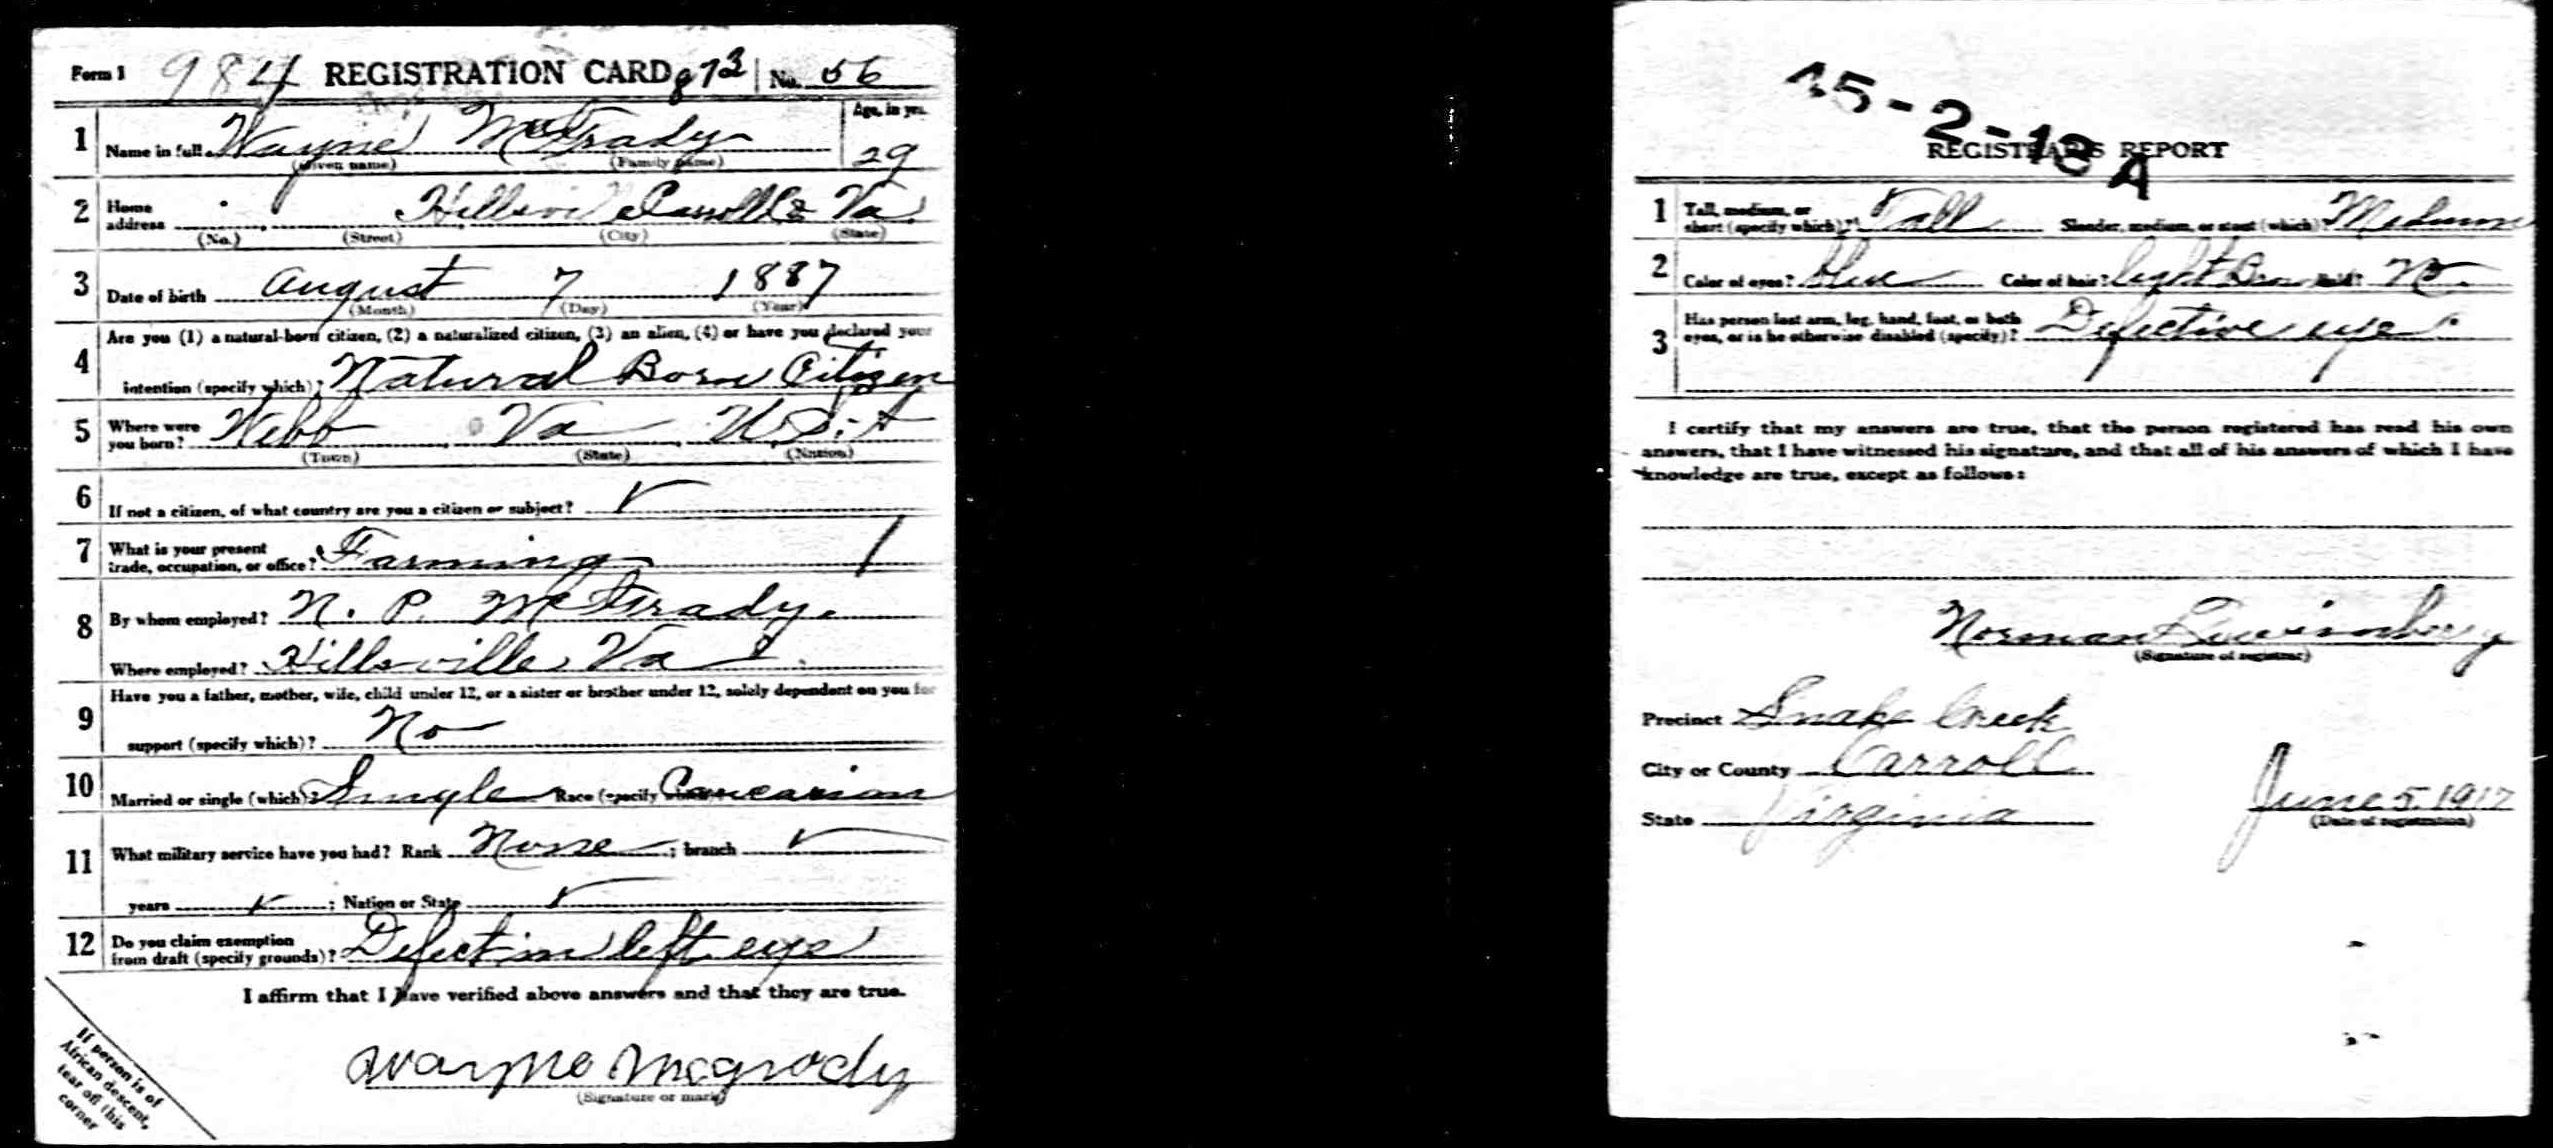 Form 1 984 REGISTRATION CARD 873 No. 56
1 Name in full Wayne McGrady Age, in yrs.
(Given name) (Family name) 29
2 Home address Hillsville Carroll Co Va.
(No.) (Street) (City) (State)
3 Date of birth August 7 1887
(Month) (Day) (Year)
Are you (1) a natural-born citizen, (2) a naturalized citizen, (3) an alien, (4) or have you declared your
4 intention (specify which)? Natural Born Citizen
5 Where were you born? Webb Va U.S.A
(Town) (State) (Nation)
6 If not a citizen, of what country are you a citizen or subject?
7 What is your present trade, occupation, or office? Farming
8 By whom employed? N. P. McGrady.
Where employed? Hillsville, Va
Have you a father, mother, wife, child under 12, or a sister or brother under 12, solely dependent on you for
9 support (specify which)? No
10 Married or single (which)? Single Race (specify which)? Caucasian
11 What military service have you had? Rank None ; branch
years ; Nation or State
12 Do you claim exemption from draft (specify grounds)? Defect in left eye
I affirm that I have verified above answers and that they are true.
Wayne Mcgrady
(Signature or mark)
If person is of
African descent,
tear off this
corner
45-2-18 A
REGISTRAR'S REPORT
1 Tall, medium, or short (specify which)? Tall Slender, medium, or stout (which)? Medium
2 Color of eyes? Blue Color of hair? light Bro Bald? No
3 Has person lost arm, leg, hand, foot, or both eyes, or is he otherwise disabled (specify)? Defective eye
I certify that my answers are true, that the person registered has read his own
answers, that I have witnessed his signature, and that all of his answers of which I have
knowledge are true, except as follows:
Norman
(Signature of registrar)
Precinct Snake Creek
City or County Carroll
State Virginia
June 5, 1917
(Date of registration)